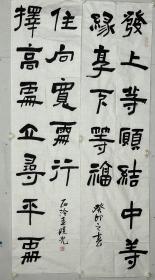 發上等願結中等
緣享下等福
癸卯之
擇高處立尋平處
住向寬處行